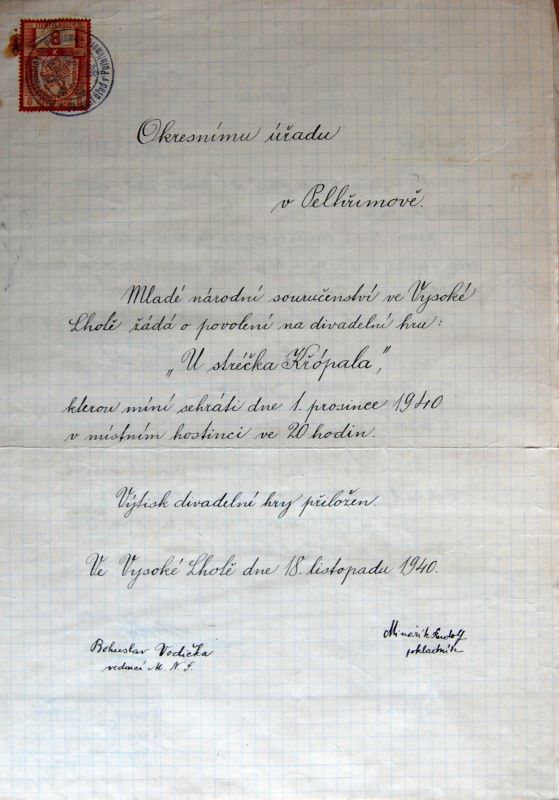 8
K
Okresnímu úřadu
v Pelhřimově.
Mladé národní souručenství ve Vysoké
Lhotě žádá o povolení na divadelní hru:
„U stréčka Křópala",
kterou míní sehráti dne 1. prosince 1940
v místním hostinci ve 20 hodin.
Výtisk divadelní hry přiložen.
Ve Vysoké Lhotě dne 18. listopadu 1940.
Minařík Rudolf
pokladník
Bohuslav Vodička
vedoucí M. N. S.